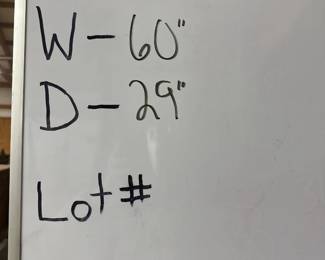 W - 60"
D - 29"
Lot #